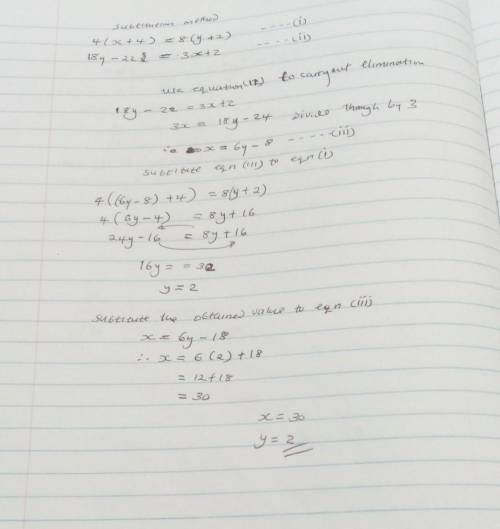 Substitution method
4(x+4) = 8(y+2) ----(i)
18y-22 = 3x+2 ----(ii)
use equation (ii) to carryout elimination
18y - 22 = 3x+2
3x = 18y-24 Divide though by 3
x = 6y-8 -----(iii)
Substitute eqn (iii) to eqn (i)
4((6y-8)+4) = 8(y+2)
4(6y-4) = 8y+16
24y-16 = 8y+16
16y = = 32
y = 2
Substitute the obtained value to eqn (iii)
x = 6y-18
∴ x = 6(2)+18
= 12+18
= 30
x = 30
y = 2